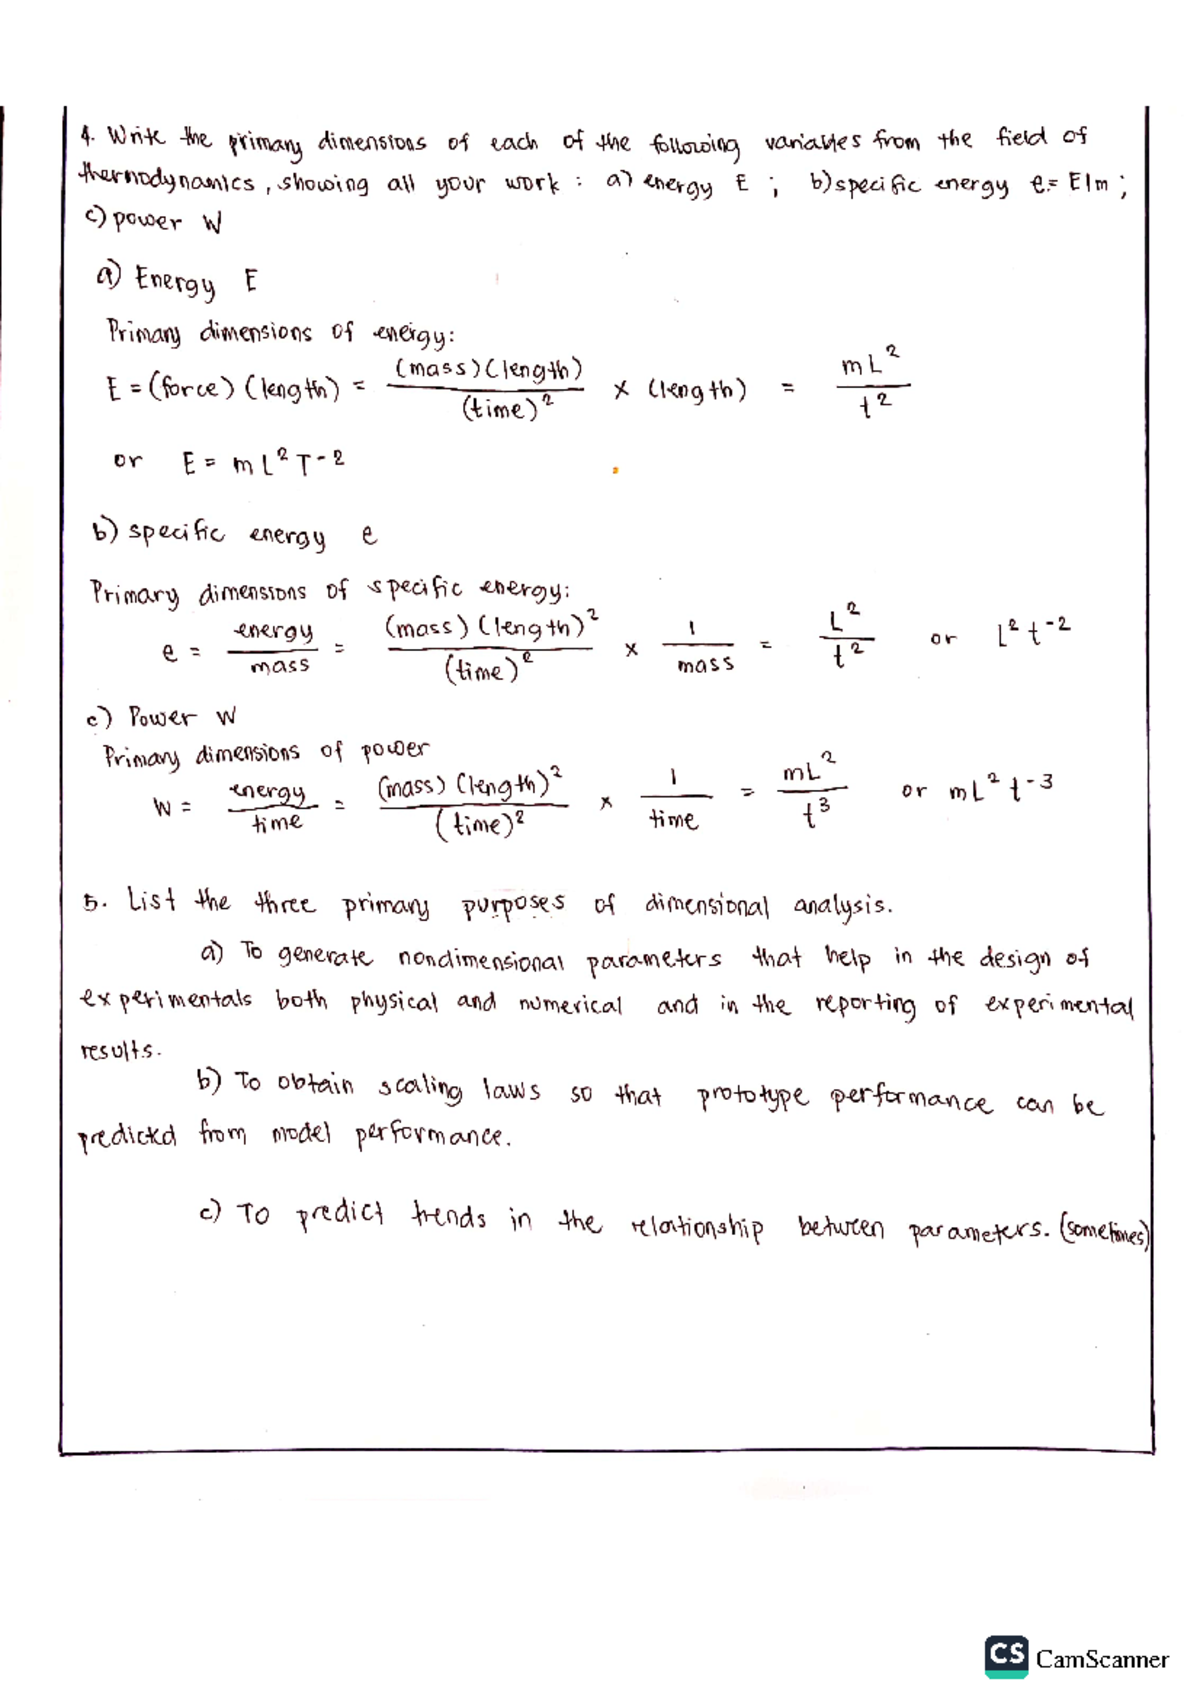 4. Write the primary dimensions of each of the following variables from the field of
thermodynamics, showing all your work : a) energy E ; b) specific energy e = E/m ;
c) power W
a) Energy E
Primary dimensions of energy:
E = (force) (length) = (mass)(length) / (time)² × (length) = mL² / t²
or E = mL²T-2
b) specific energy e
Primary dimensions of specific energy:
e = energy / mass = (mass) (length)² / (time)² × 1 / mass = L² / t² or L² t-2
c) Power W
Primary dimensions of power
W = energy / time = (mass) (length)² / (time)² × 1 / time = mL² / t³ or mL² t-3
5. List the three primary purposes of dimensional analysis.
a) To generate nondimensional parameters that help in the design of
experimentals both physical and numerical and in the reporting of experimental
results.
b) To obtain scaling laws so that prototype performance can be
predicted from model performance.
c) To predict trends in the relationship between parameters. (sometimes)
CS CamScanner